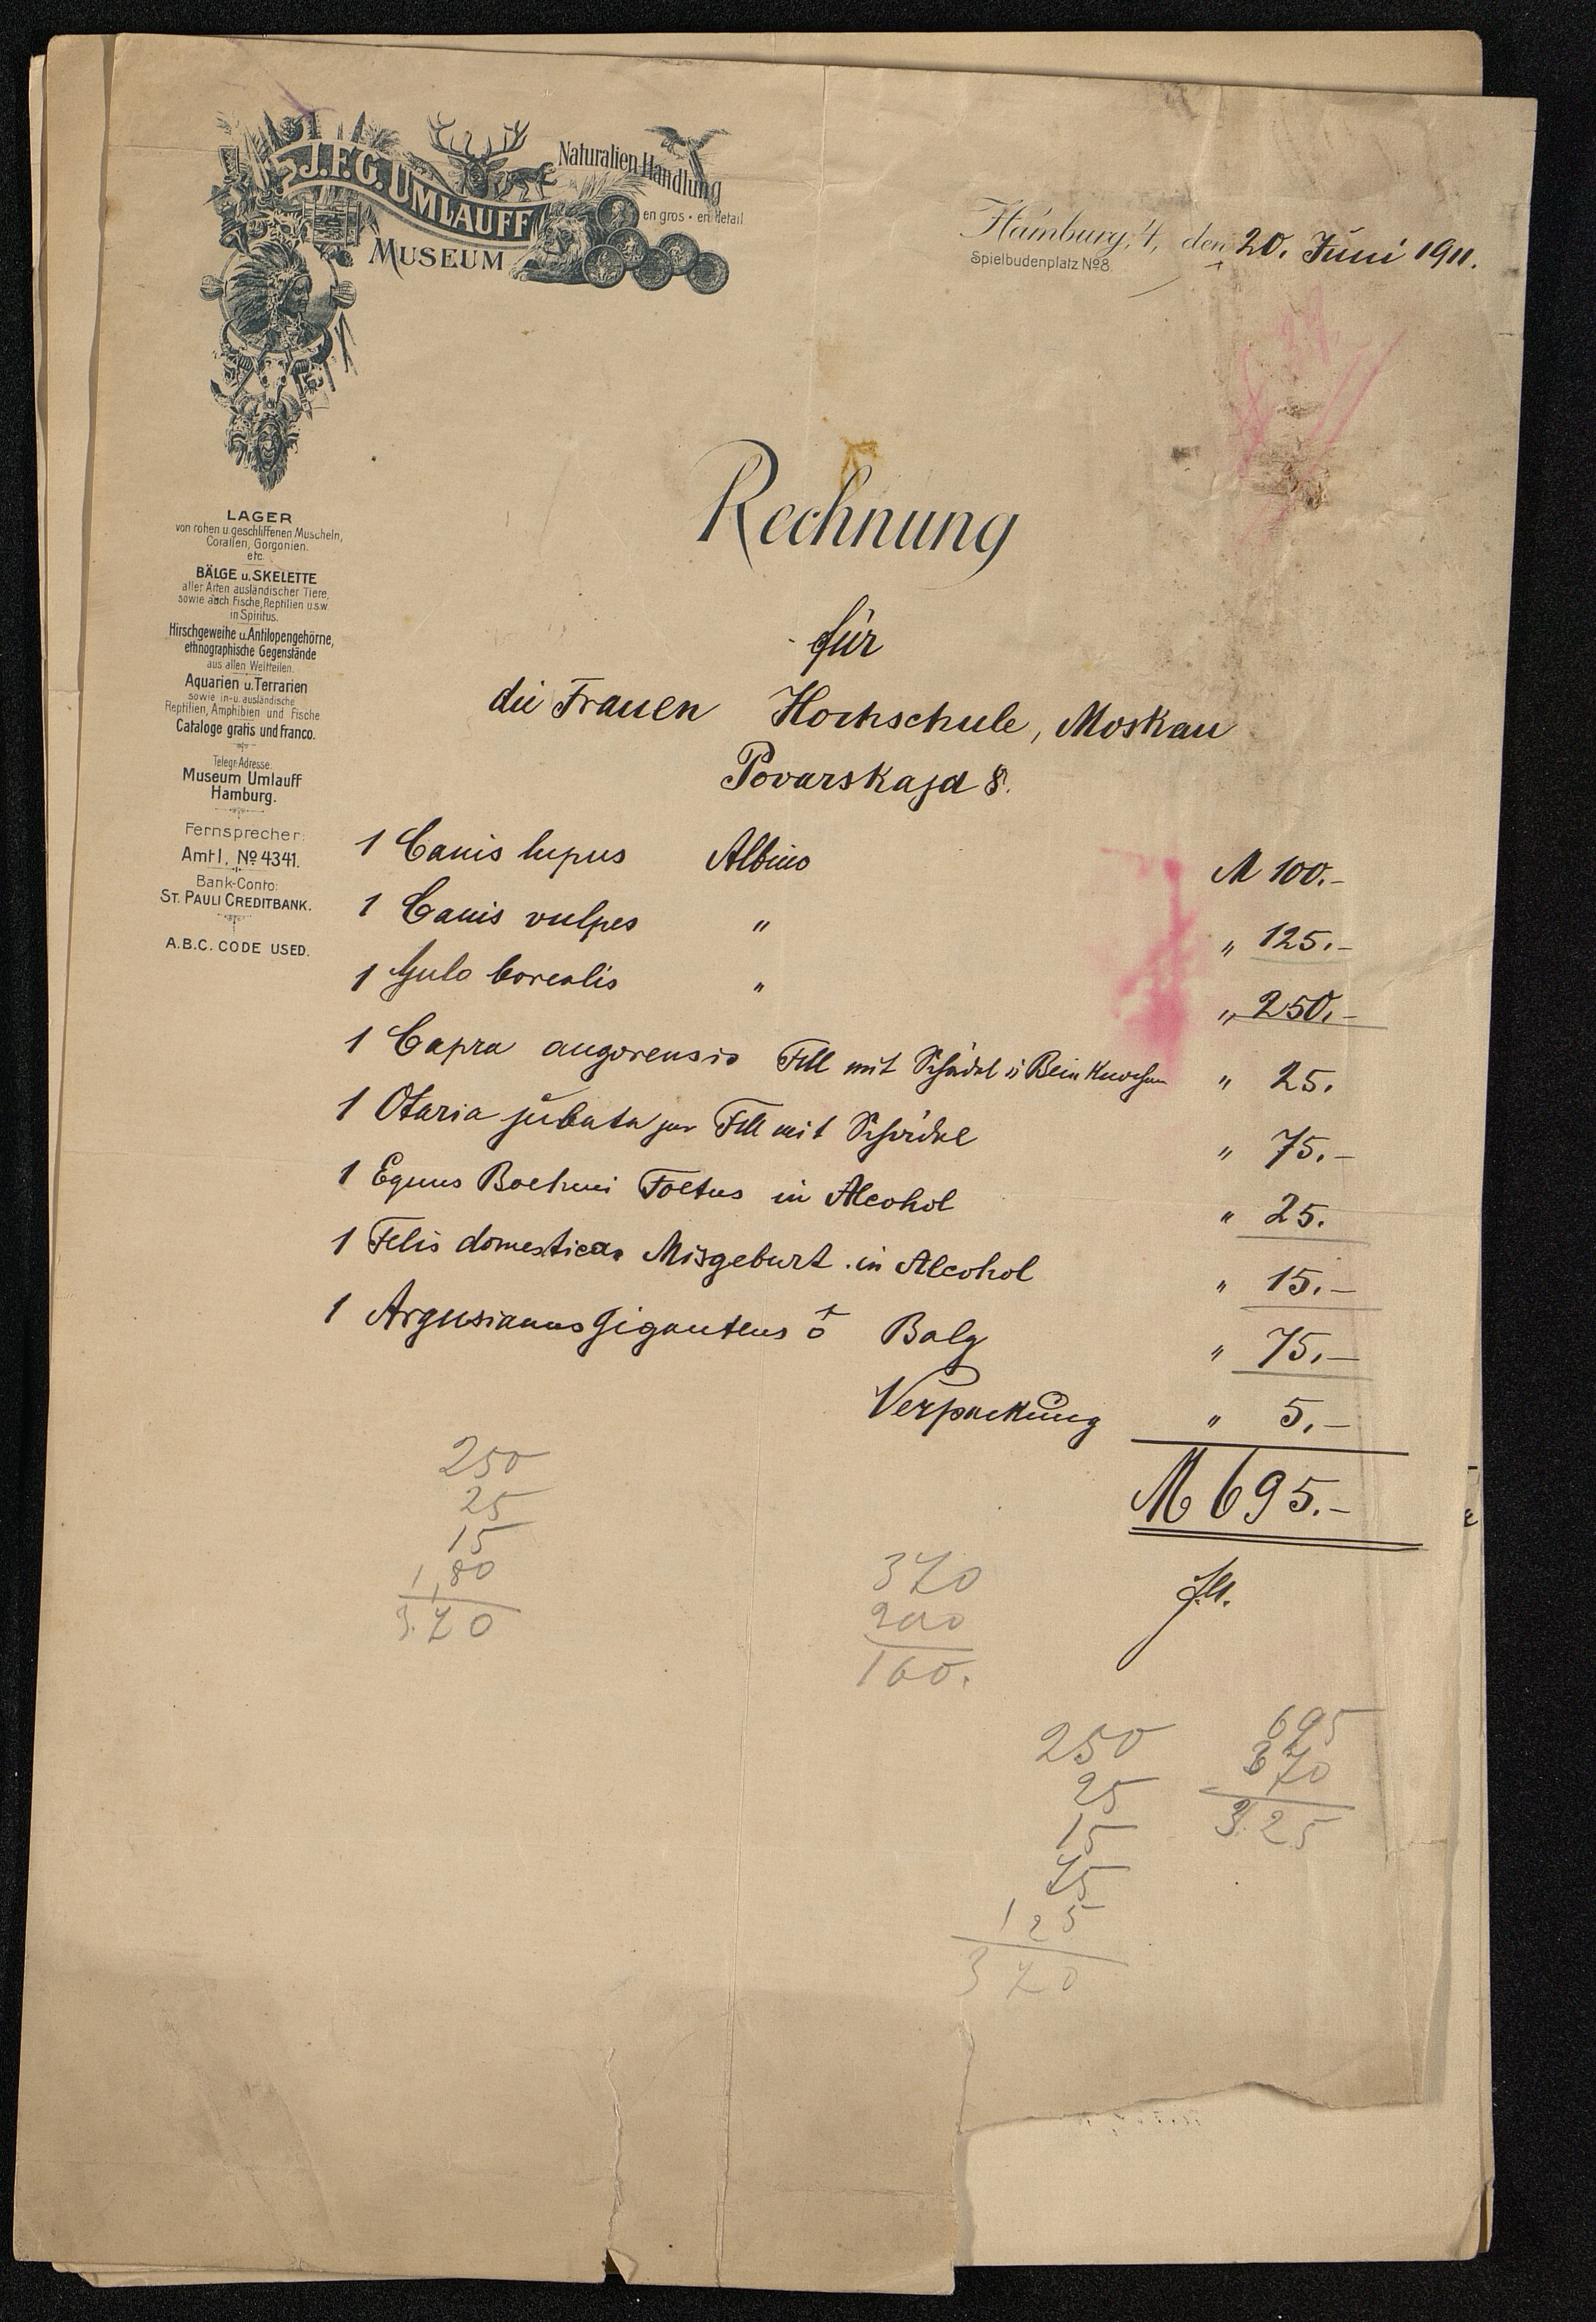 J.F.G. UMLAUFF
MUSEUM
Naturalien-Handlung
en gros • en detail
Hamburg, 4, den 20. Juni 1911.
Spielbudenplatz № 8.
LAGER
von rohen u. geschliffenen Muscheln,
Corallen, Gorgonien.
etc.
BÄLGE u. SKELETTE
aller Arten ausländischer Tiere,
sowie auch Fische, Reptilien u.s.w.
in Spiritus.
Hirschgeweihe u. Antilopengehörne,
ethnographische Gegenstände
aus allen Weltteilen.
Aquarien u. Terrarien
sowie in- u. ausländische
Reptilien, Amphibien und Fische
Cataloge gratis und franco.
Telegr. Adresse:
Museum Umlauff
Hamburg.
Fernsprecher:
Amt I, № 4341.
Bank-Conto:
ST. PAULI CREDITBANK.
A.B.C. CODE USED.
Rechnung
für
die Frauen Hochschule, Moskau
Povarskaja 8.
1 Canis lupus Albino M 100.-
1 Canis vulpes " " 125.-
1 Gulo borealis " " 250.-
1 Capra angorensis Fell mit Schädel u Bein Knochen " 25.
1 Otaria jubata juv Fell mit Schädel " 75.-
1 Equus Boehmi Foetus in Alcohol " 25.
1 Felis domestica Misgeburt in Alcohol " 15.-
1 Argusianus giganteus ♂ Balg " 75.-
Verpackung " 5.-
M 695.-
250
25
15
1,80
370
370
200
160.
695
370
325
250
25
15
75
125
370